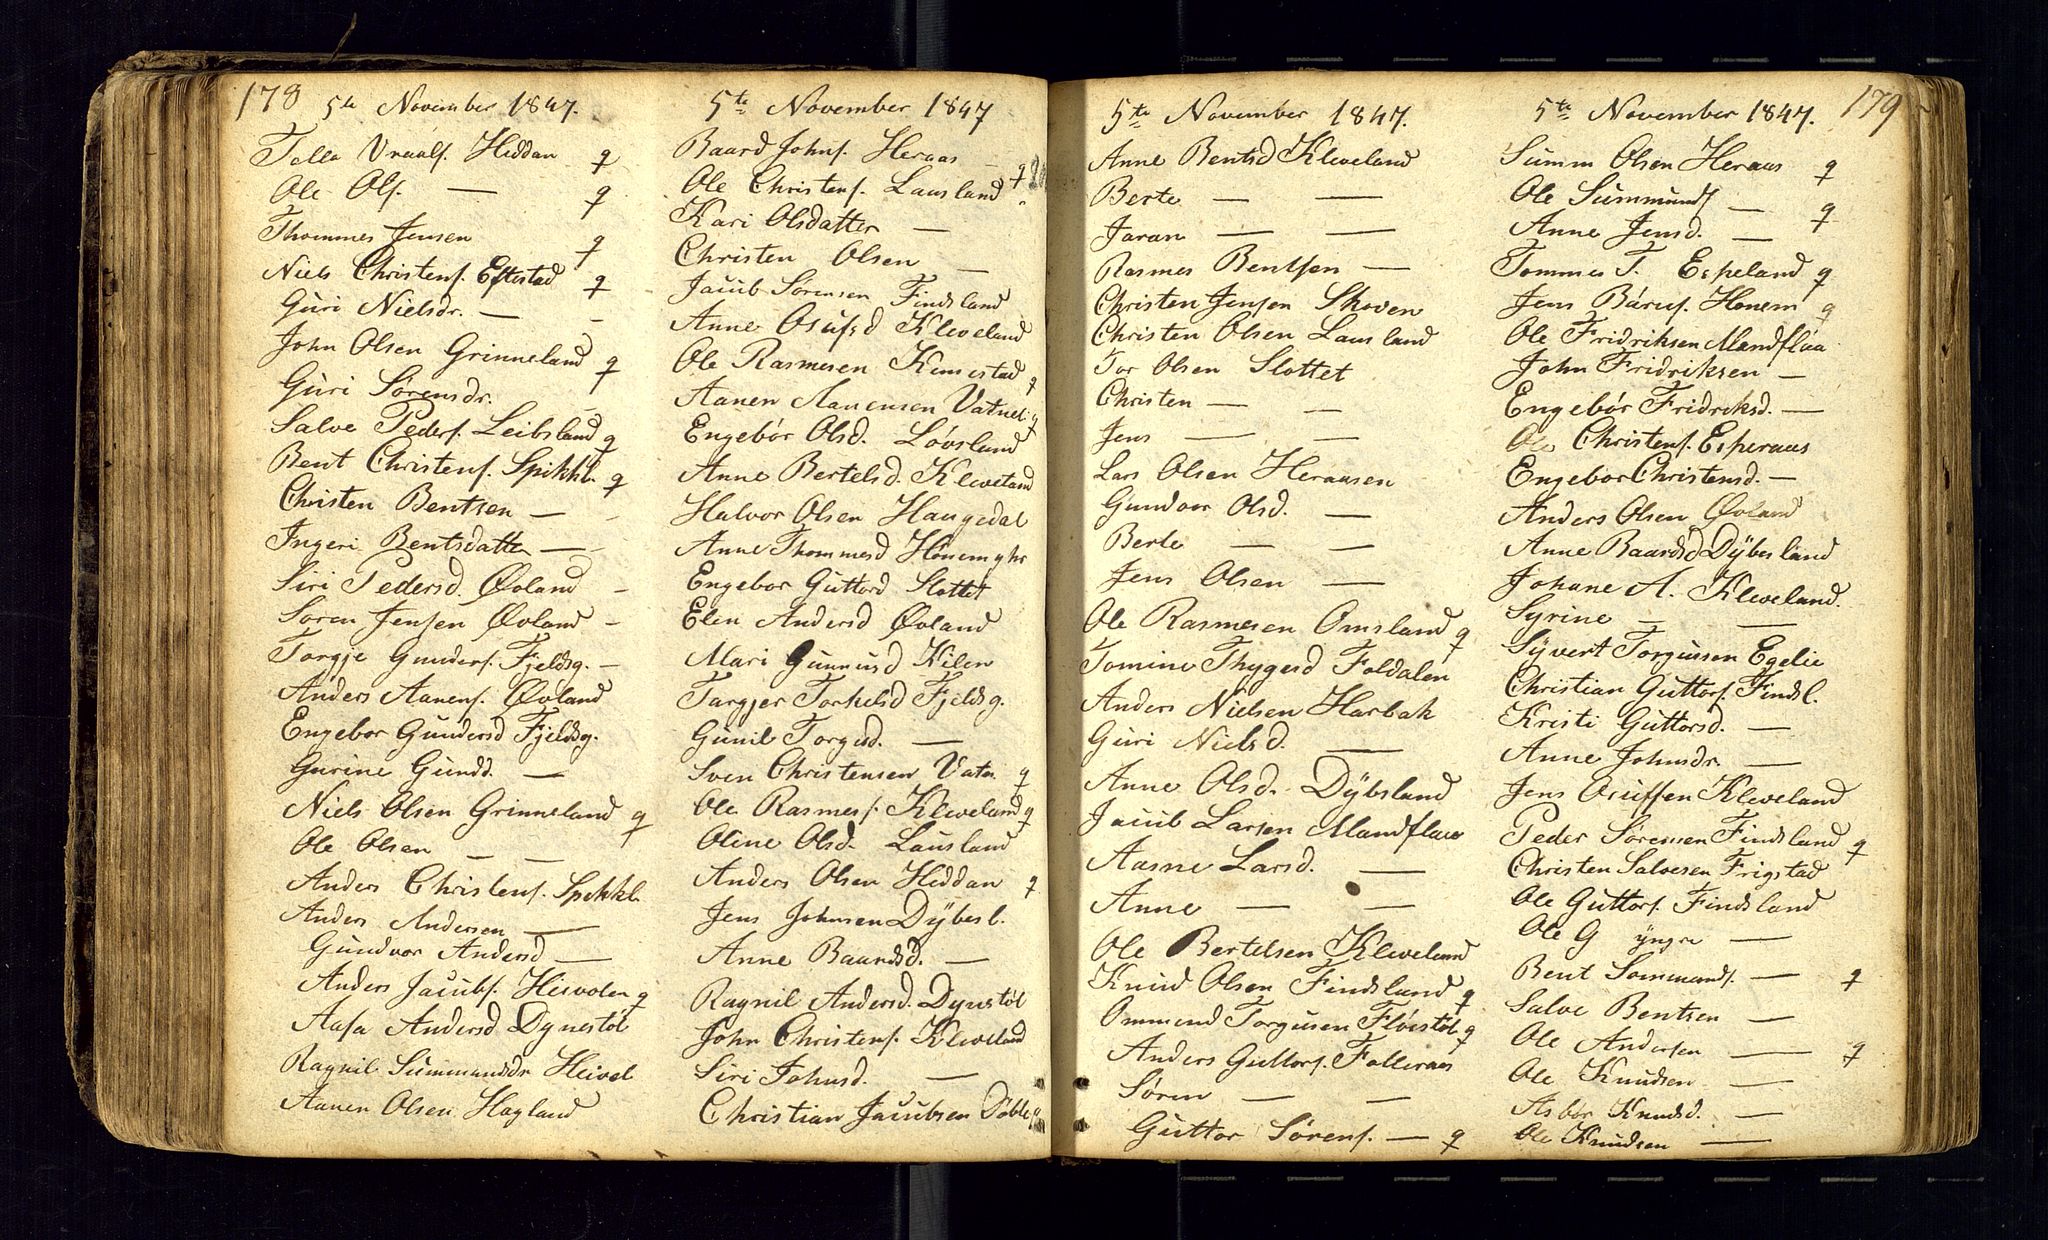 178
5te November 1847.
Talla Vraals. Heddan q
Ole Ols. — q
Thommes Jensen q
Niels Christens. Eftestad q
Guri Nielsdr. —
John Olsen Grinneland q
Guri Sørensdr.
Salve Peders. Leibsland q
Bent Christens. Spikkl. q
Christen Bentsen —
Ingeri Bentsdatter —
Siri Pedersd Øvland
Søren Jensen Øvland
Torgje Gunders. Fjeldsg. —
Anders Aanens. Øvland
Engebor Gundersd Fjeldsg.
Gurine Gundd. —
Niels Olsen Grinneland q
Ole Olsen — —
Anders Christens. Spikkl.
Anders Andersen —
Gundvor Andersd —
Anders Jacobs. Heivolen q
Aasa Andersd Dynestøl
Ragnil Summundsdr Heivol
Aanen Olsen Hagland
5te November 1847
Baard Johns. Heraas — q
Ole Christens. Lausland
Kari Olsdatter —
Christen Olsen —
Jacob Sørensen Findsland
Anne Osufsd Kleveland
Ole Rasmesen Kimestad q
Aanen Aanensen Vatnel. q
Engebør Olsd. Løvsland
Anne Bertelsd. Kleveland
Halvor Olsen Haugedal
Anne Thommesd Honemyhr
Engebor Guttord Slottet
Elen Andersd Øvland
Mari Gunnusd Kilen
Targjer Torkelsd Fjeldsg.
Gunil Torgusd. —
Sven Christensen Vatn. q
Ole Rasmess. Kleveland q
Oline Olsd. Lausland
Anders Olsen Heddan q
Jens Johnsen Dÿbesl.
Anne Baardsd. —
Ragnil Andersd. Dynstøl
John Christens. Kleveland
Siri Johnsd. —
Christian Jacobsen Døble q
5te November 1847.
Anne Bentsd Kleveland
Berte — —
Jaran — —
Rasmes Bentsen —
Christen Jensen Skoven
Christen Olsen Lausland
Tor Olsen Slottet
Christen — —
Jens — —
Lars Olsen Heraasen
Gundvor Olsd. —
Berte — —
Jens Olsen —
Ole Rasmesen Omsland q
Tomine Thygesd Foldalen
Anders Nielsen Harbak
Guri Nielsd. —
Anne Olsd. Dÿbsland
Jacob Larsen Mandflaa
Aasne Larsd. —
Anne — —
Ole Bertelsen Kleveland
Knud Olsen Findsland q
Ommund Torgusen Fløistøl q
Anders Guttors. Folleraas
Søren — —
Guttor Sørens. — q
5te November 1847.
179
Summ Olsen Heraas q
Ole Summunds — q
Anne Jensd. —
Tommes T. Espeland q
Jens Bárus. Honem q
Ole Fridriksen Mandflaa
John Fridriksen —
Engebør Fridriksd. —
Ole Christens. Esperaas
Engebor Christensd. —
Anders Olsen Øvland
Anne Baardsd Dÿbesland
Johane A. Kleveland.
Syrine — —
Sÿvert Torgussen Egelie
Christian Guttors. Findsl.
Kristi Guttorsd. —
Anne Johnsdr. —
Jens Osuffsen Kleveland
Peder Sørensen Findsland q
Christen Salvesen Frigstad
Ole Guttors. Findsland
Ole G ÿngre —
Bent Sommunds. — q
Salve Bentsen —
Ole Andersen — q
Ole Knudsen —
Asbør Knudsd. —
Ole Knudsen —